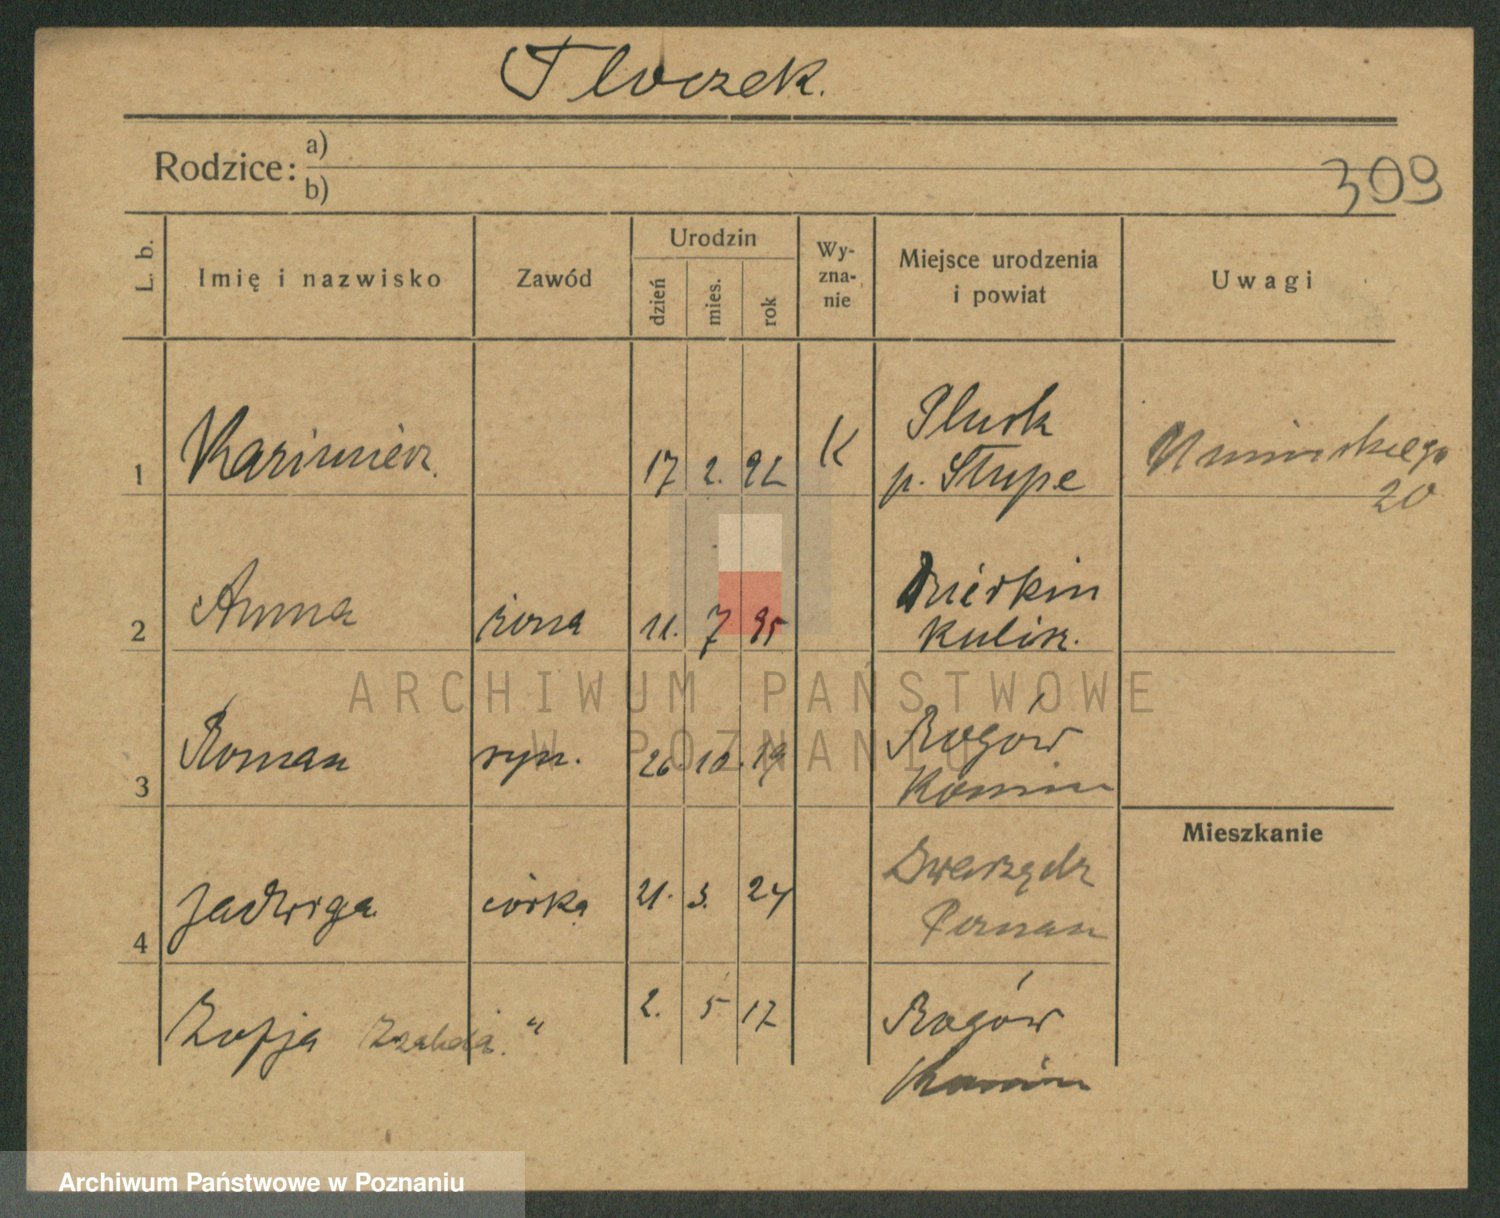 Tloczek.
Rodzice: a)
b)
309
L. b. Imię i nazwisko Zawód Urodzin dzień mies. rok Wy-zna-nie Miejsce urodzenia i powiat Uwagi
1 Kazimierz. 17 2. 92 K
p. Słupe
20
2 Anna żona 11. 7 95
3 Roman syn. 26. 10. 19 Rogów
Konin
Mieszkanie
4 Jadwiga córka 21. 3. 24 Swarzędz
Poznań
Zofja " 2. 5 17 Rogów
Konin
ARCHIWUM PAŃSTWOWE
W POZNANIU
Archiwum Państwowe w Poznaniu